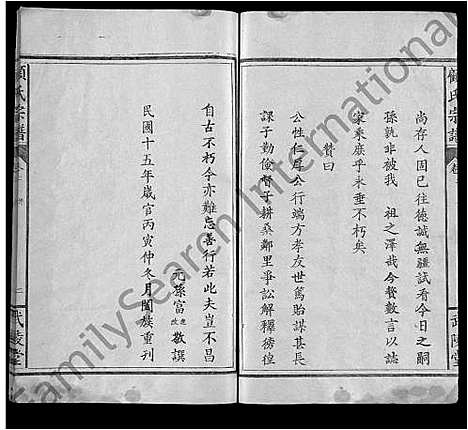 顧氏宗譜
卷
武陵堂
尚存人固已往德誠無疆試看今日之嗣
孫孰非被我 祖之澤哉今餐數言以誌
家乘庶乎永垂不朽矣
贊曰
公性仁厚公行端方孝友世篤貽謀甚長
課子勤儉督子耕桑鄰里爭訟解釋徬徨
自古不朽令亦難忘善行若此夫豈不昌
元孫富 敬譔
民國十五年歲官丙寅仲冬月闔族重刊
顧氏宗譜
二
武陵堂
FamilySearch International